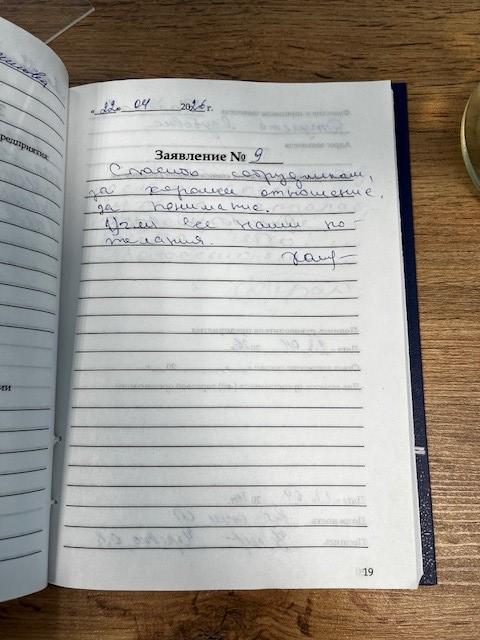 «22» 04 2026 г.
Заявление № 9
Спасибо сотрудникам,
за хорошее отношение,
за понимание.
Учли все наши по-
желания.
предприятия:
ии
19